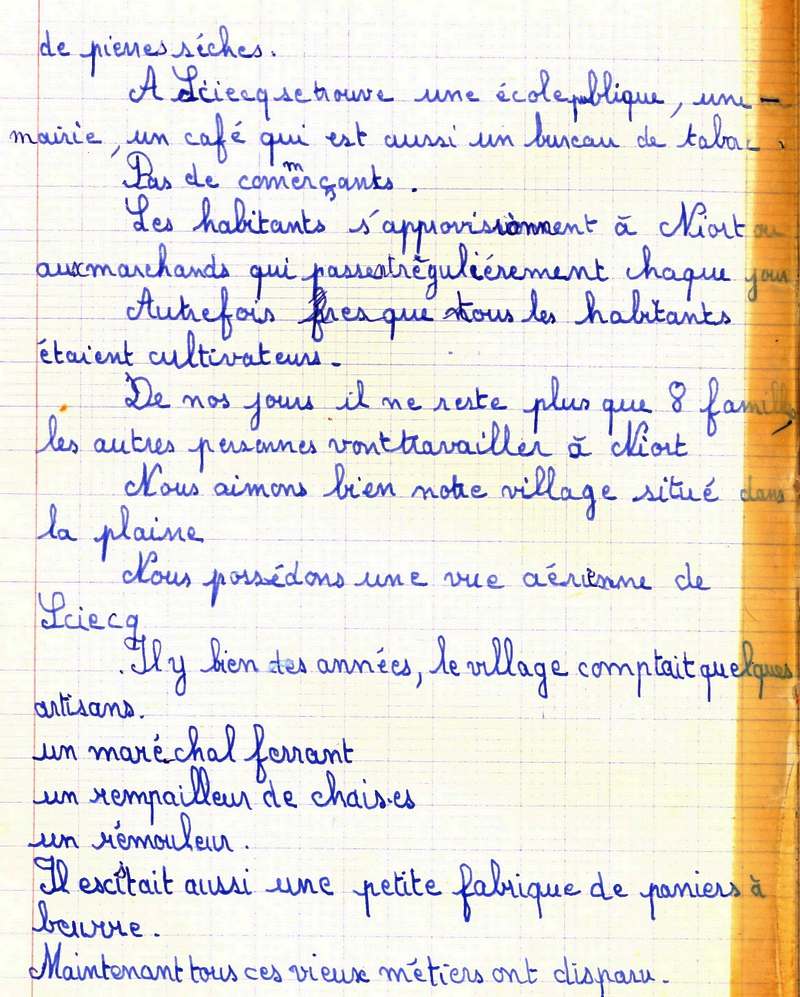 de pierres séches.
A Sciecq se trouve une école publique, une
mairie, un café qui est aussi un bureau de tabac.
Pas de commerçants.
Les habitants s'approvisionnent à Niort ou
aux marchands qui passent réguliérement chaque jour
Autrefois presque tous les habitants
étaient cultivateurs.
De nos jours il ne reste plus que 8 familles,
les autres personnes vont travailler à Niort
Nous aimons bien notre village situé dans
la plaine
Nous possédons une vue aérienne de
Sciecq
Il y bien des années, le village comptait quelques
artisans.
un maréchal ferrant
un rempailleur de chaises
un rémouleur.
Il escitait aussi une petite fabrique de paniers à
beurre.
Maintenant tous ces vieux métiers ont disparu.